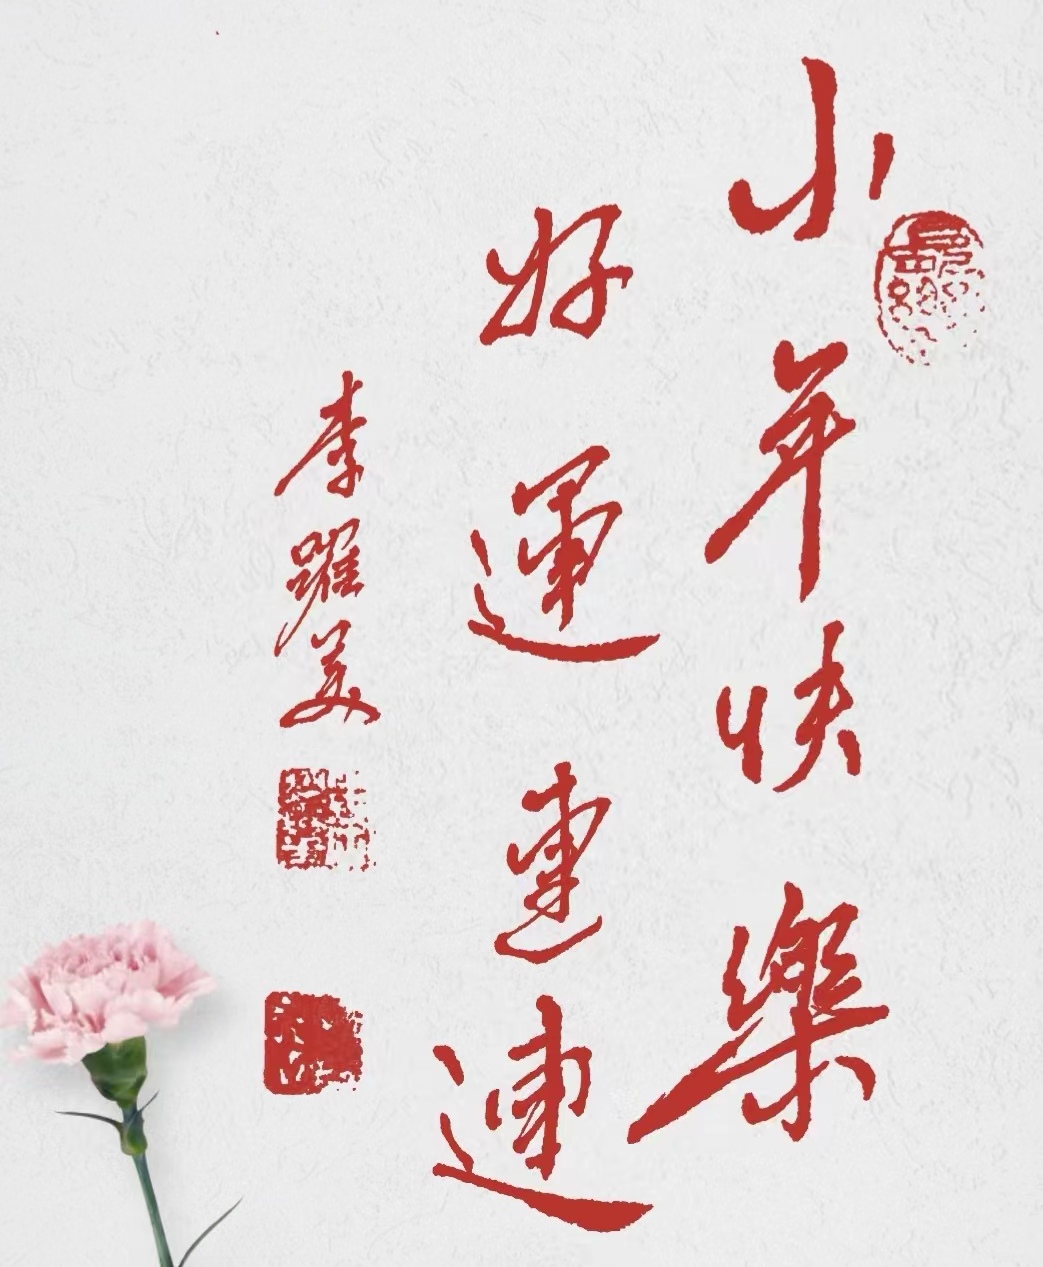 小年快樂
好運連連
李躍美